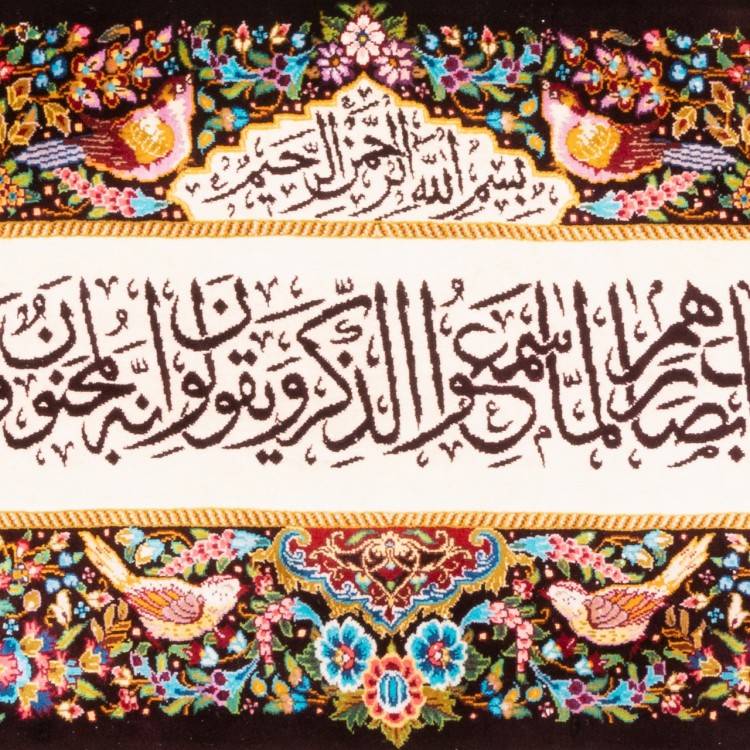 بِسْمِ اللَّهِ الرَّحْمَٰنِ الرَّحِيمِ
بْصَارِهِمْ لَمَّا سَمِعُوا الذِّكْرَ وَيَقُولُونَ إِنَّهُ لَمَجْنُونٌ